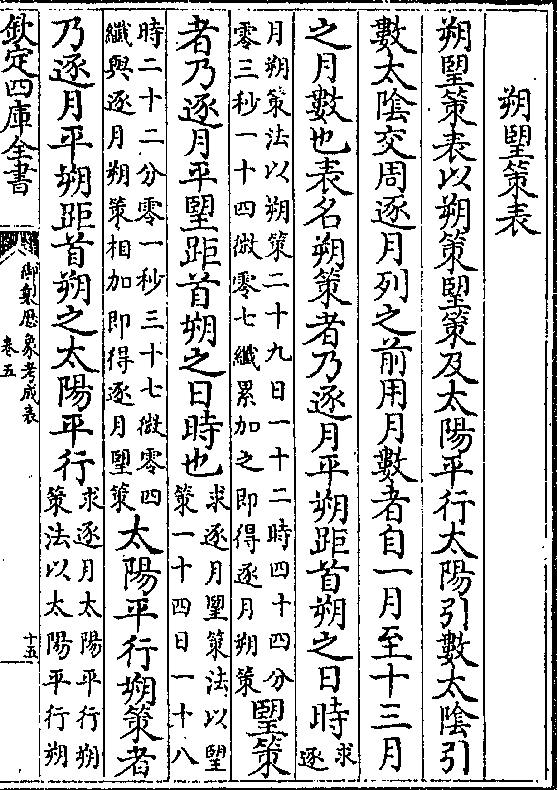 朔望策表
朔望策表以朔策望策及太陽平行太陽引數太陰引
數太陰交周逐月列之前用月數者自一月至十三月
之月數也表名朔策者乃逐月平朔距首朔之日時求逐
月朔策法以朔策二十九日一十二時四十四分
零三秒一十四微零七纖累加之即得逐月朔策望策
者乃逐月平望距首朔之日時也求逐月望策法以望
策一十四日一十八
時二十二分零一秒三十七微零四
纖與逐月朔策相加即得逐月望策太陽平行朔策者
乃逐月平朔距首朔之太陽平行求逐月太陽平行朔
策法以太陽平行朔
欽定四庫全書
御製歷象考成表
卷五
十五